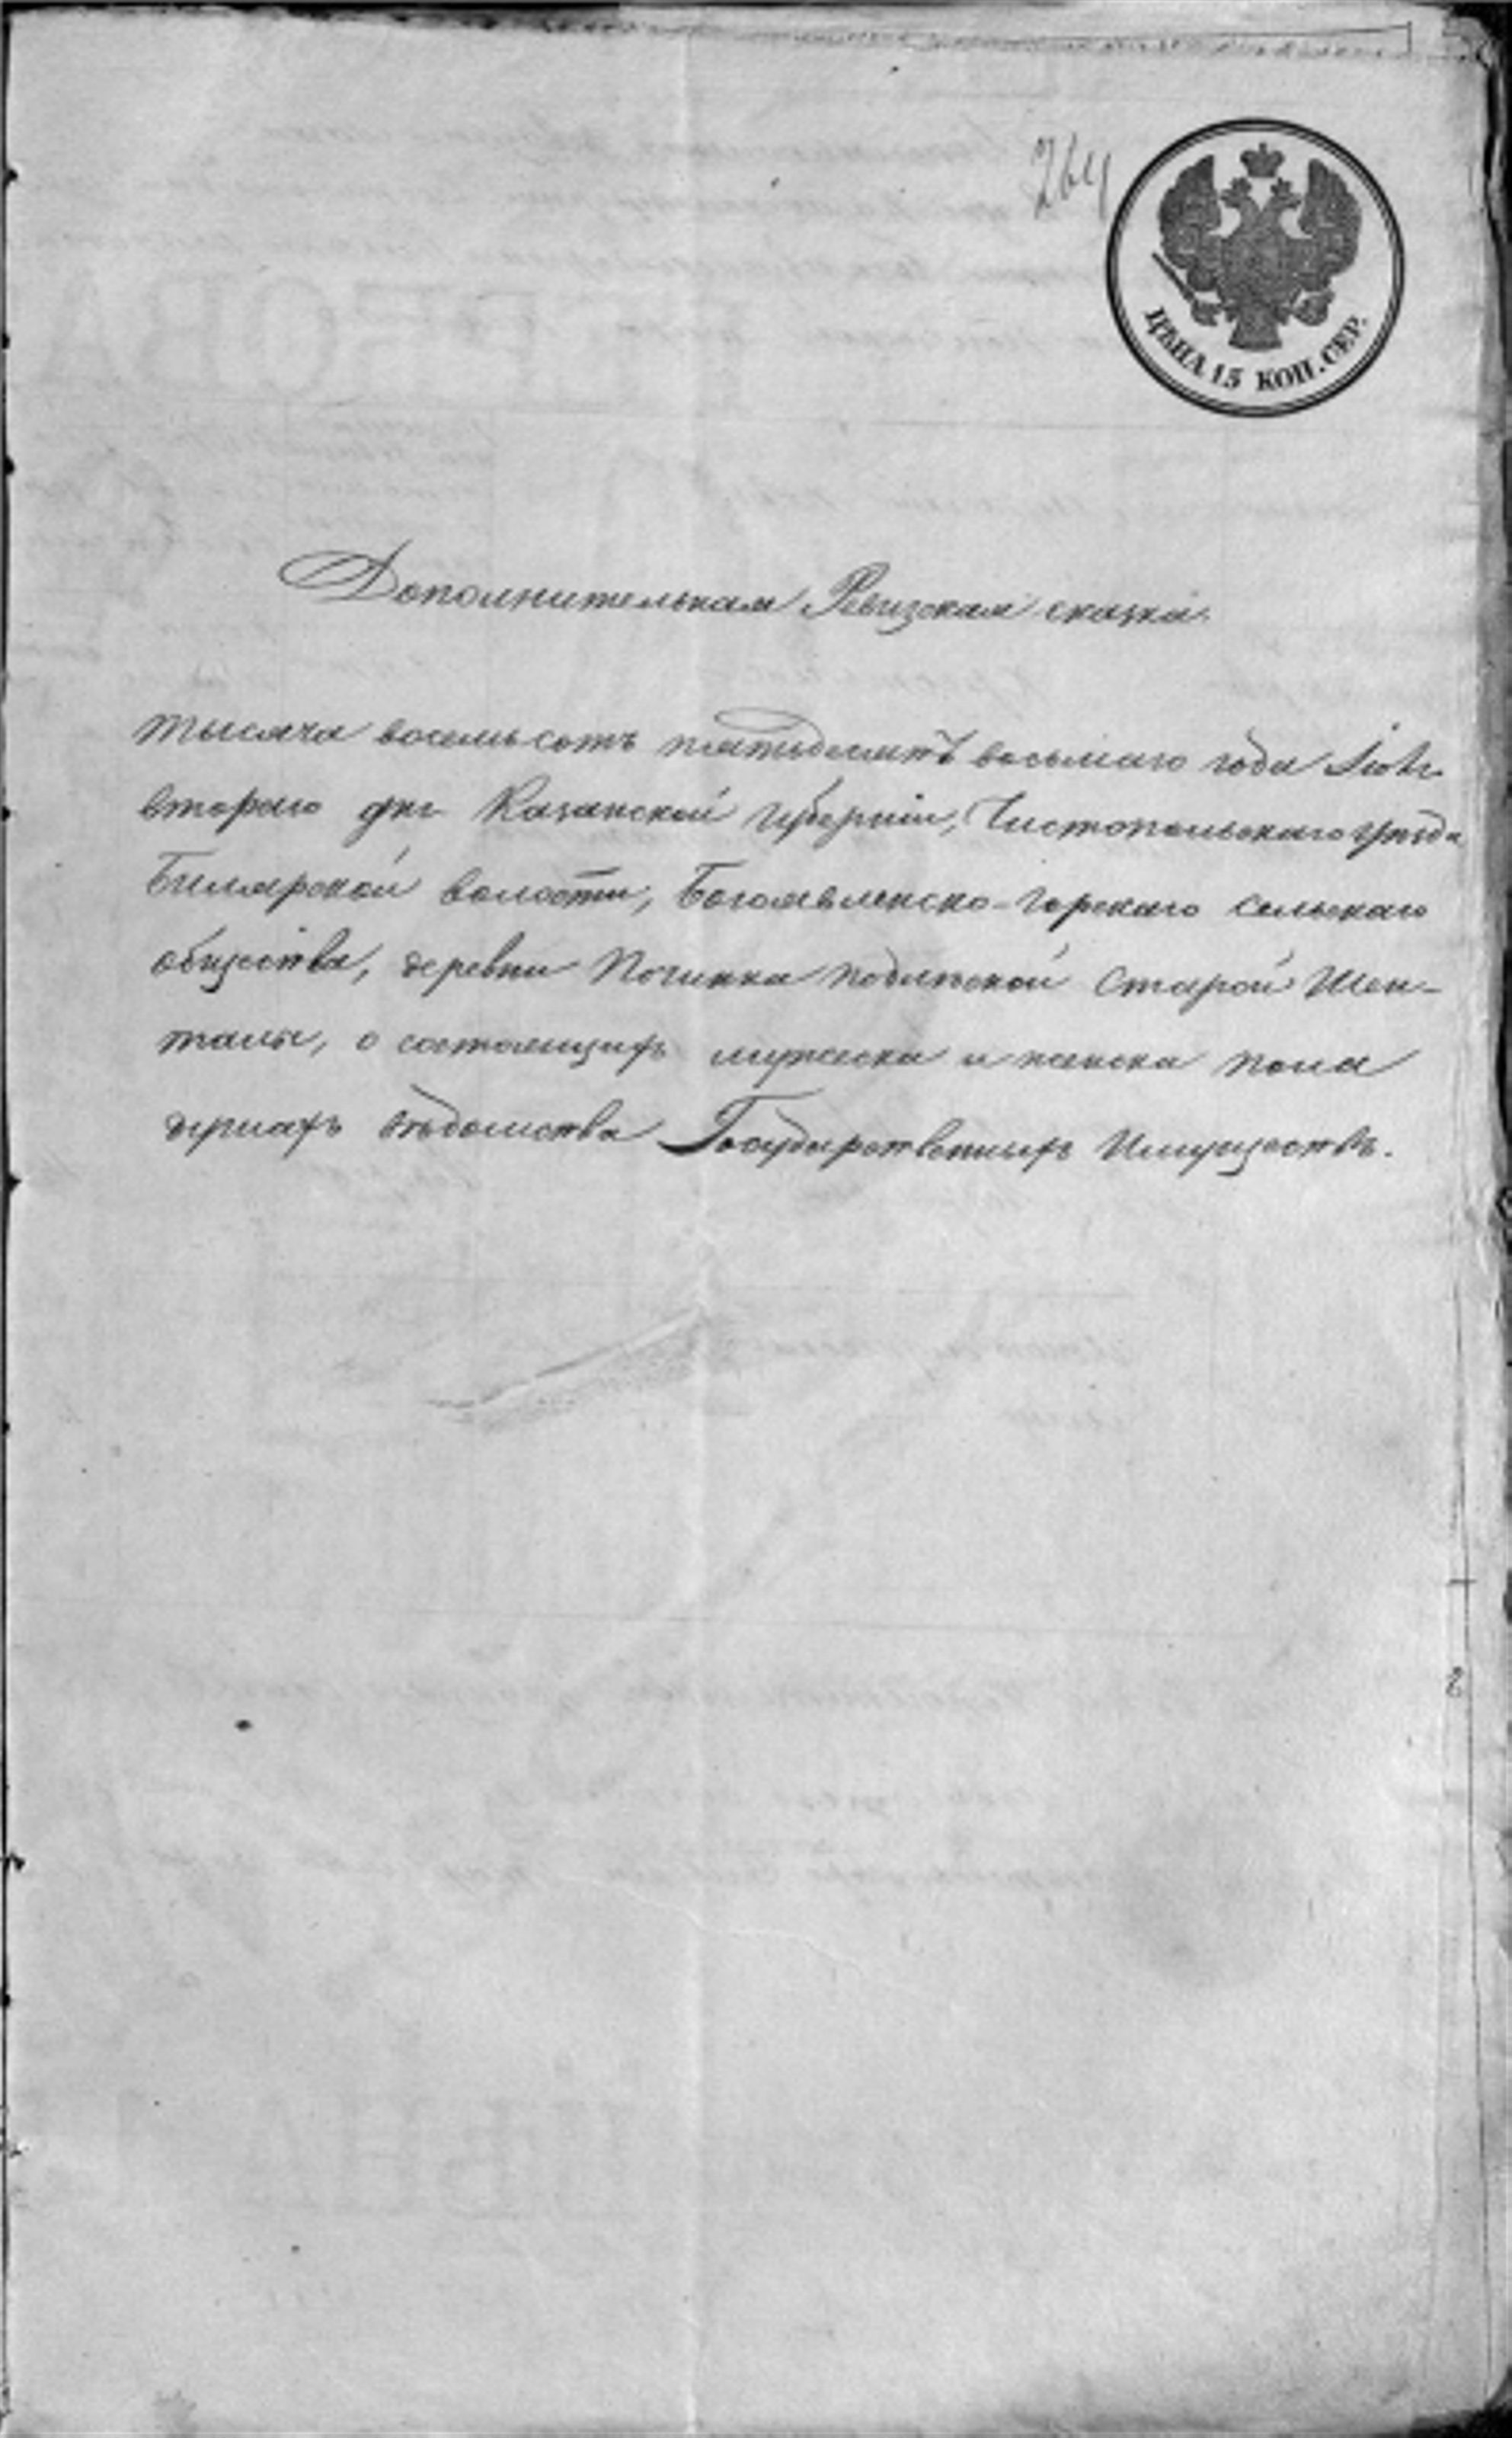 264
ЦѢНА 15 КОП. СЕР.
Дополнительная Ревизская сказка
тысяча восемь сотъ пятьдесятъ восьмаго года Іюля
втораго дня Казанской Губерніи, Чистопольскаго уѣзда
Билярской волости, Богоявленско-Горскаго сельскаго
общества, деревни Починка подлѣсной Старой Шен-
талы, о состоящихъ мужеска и женска пола
душахъ вѣдомства Государственныхъ Имуществъ.